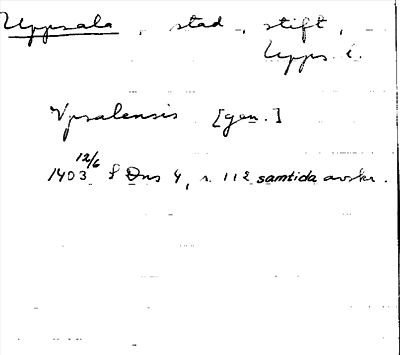 Uppsala, stad, stift,
Upps. l.
Vpsalensis [gen.]
1403 12/6 f Dns 4, s. 112 samtida avskr.